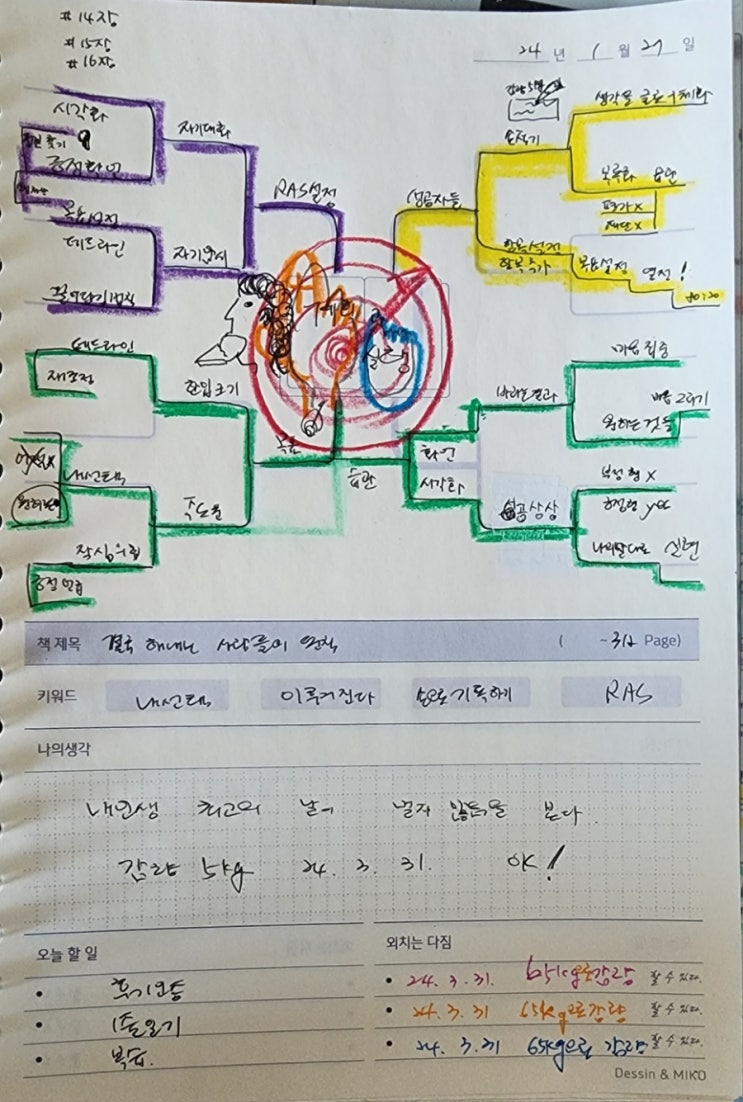 #14장
#15장
#16장
24 년 1 월 29 일
시각화
자기대화
긍정확언
RAS설정
목표설정
데드라인
자기암시
끌어당김법칙
성공자들
손적기
생각을 글로 구체화
목록화 습관
평가 x
재단 x
목표설정 열정!
80:20
계획
데드라인
재조정
한입크기
목표
내선택
주도권
작심의힘
습관
확언
시각화
바라는결과
마음집중
마음 그리기
원하는 것들
성공상상
부정형 x
긍정형 yes
나의말대로 실현
책 제목 결국 해내는 사람들의 원칙 ( ~312 Page)
키워드 내선택 이루어진다 손으로기록하기 RAS
나의생각
내인생 최고의 날의 날자 않음을 본다.
감량 5kg 24. 3. 31. OK!
오늘 할 일
외치는 다짐
• 후기작성
• 24. 3. 31. 65kg으로감량 할 수 있다.
• 1손일기
• 24. 3. 31 65kg으로감량 할 수 있다.
• 복습.
• 24. 3. 31 65kg으로 감량 할 수 있다.
Dessin & MIKO